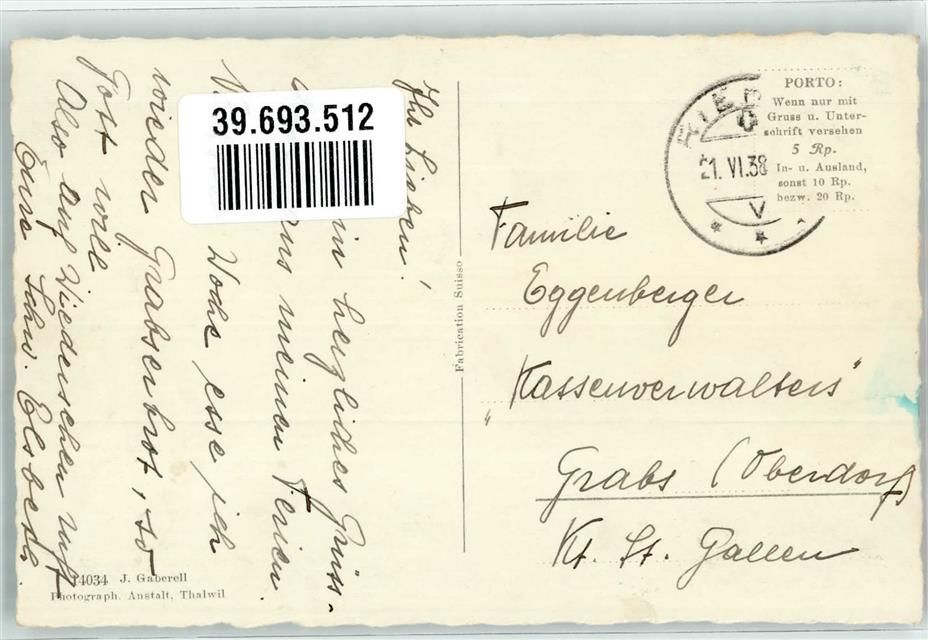 39.693.512
Ihr Lieben!
in herzliches Grüss-
aus meinen Ferien.
Woche esse ich
wieder Grabserbrot, so
Gott will
Also auf Wiedersehen ruft
Eure Schw. Elsbeth.
14034 J. Gaberell
Photograph. Anstalt, Thalwil
Fabrication Suisse
21. VI. 38
V
PORTO:
Wenn nur mit
Gruss u. Unter-
schrift versehen
5 Rp.
In- u. Ausland,
sonst 10 Rp.
bezw. 20 Rp.
Familie
Eggenberger
"Kassenverwalters"
Grabs (Oberdorf)
Kt. St. Gallen